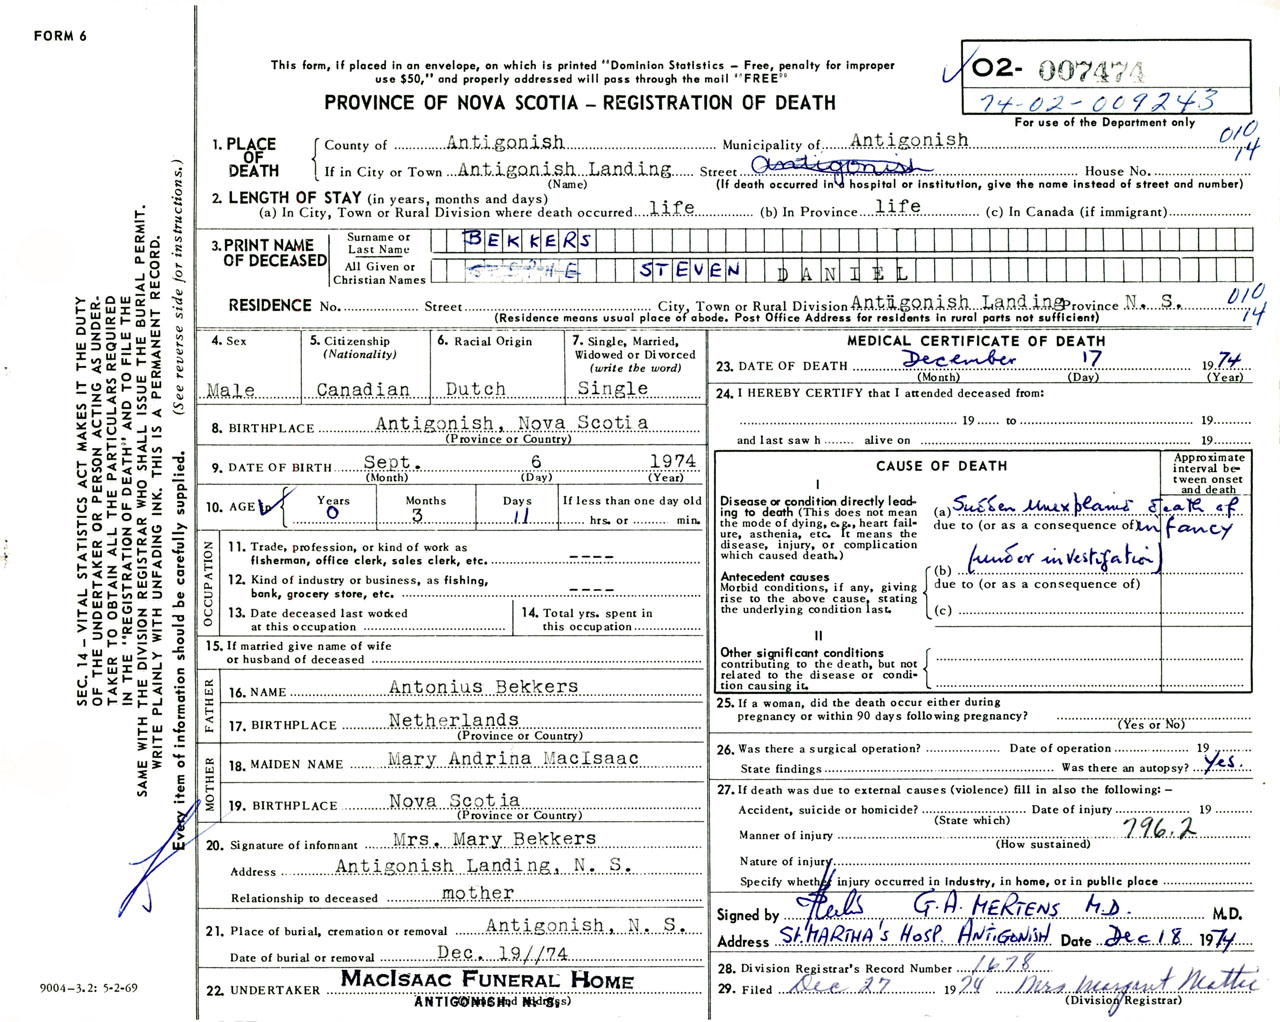 FORM 6
This form, if placed in an envelope, on which is printed "Dominion Statistics – Free, penalty for improper
use $50," and properly addressed will pass through the mail "FREE"
PROVINCE OF NOVA SCOTIA – REGISTRATION OF DEATH
02- 007474
74-02-009243
For use of the Department only
010
14
1. PLACE OF DEATH
County of Antigonish Municipality of Antigonish
If in City or Town Antigonish Landing Street Antigonish House No.
(Name) (If death occurred in a hospital or institution, give the name instead of street and number)
2. LENGTH OF STAY (in years, months and days)
(a) In City, Town or Rural Division where death occurred life (b) In Province life (c) In Canada (if immigrant)
3. PRINT NAME OF DECEASED
Surname or Last Name BEKKERS
All Given or Christian Names STEVEN DANIEL
RESIDENCE No. Street City, Town or Rural Division Antigonish Landing Province N. S.
010
14
(Residence means usual place of abode. Post Office Address for residents in rural parts not sufficient)
4. Sex
Male
5. Citizenship
(Nationality)
Canadian
6. Racial Origin
Dutch
7. Single, Married,
Widowed or Divorced
(write the word)
Single
8. BIRTHPLACE Antigonish, Nova Scotia
(Province or Country)
9. DATE OF BIRTH Sept. 6 1974
(Month) (Day) (Year)
10. AGE Years Months Days If less than one day old
0 3 11 hrs. or min.
OCCUPATION
11. Trade, profession, or kind of work as
fisherman, office clerk, sales clerk, etc. ----
12. Kind of industry or business, as fishing,
bank, grocery store, etc. ----
13. Date deceased last worked
at this occupation
14. Total yrs. spent in
this occupation
15. If married give name of wife
or husband of deceased
FATHER
16. NAME Antonius Bekkers
17. BIRTHPLACE Netherlands
(Province or Country)
MOTHER
18. MAIDEN NAME Mary Andrina MacIsaac
19. BIRTHPLACE Nova Scotia
(Province or Country)
20. Signature of informant Mrs. Mary Bekkers
Address Antigonish Landing, N. S.
Relationship to deceased mother
21. Place of burial, cremation or removal Antigonish, N. S.
Date of burial or removal Dec. 19//74
22. UNDERTAKER MACISAAC FUNERAL HOME
ANTIGONISH N. S.
MEDICAL CERTIFICATE OF DEATH
23. DATE OF DEATH December 17 1974
(Month) (Day) (Year)
24. I HEREBY CERTIFY that I attended deceased from:
19 to 19
and last saw h alive on 19
CAUSE OF DEATH
Approximate
interval be-
tween onset
and death
I
Disease or condition directly lead-
ing to death (This does not mean
the mode of dying, e.g., heart fail-
ure, asthenia, etc. It means the
disease, injury, or complication
which caused death.)
(a) Sudden unexplained death of
due to (or as a consequence of) infancy
(under investigation)
(b)
due to (or as a consequence of)
(c)
Antecedent causes
Morbid conditions, if any, giving
rise to the above cause, stating
the underlying condition last.
II
Other significant conditions
contributing to the death, but not
related to the disease or condi-
tion causing it.
25. If a woman, did the death occur either during
pregnancy or within 90 days following pregnancy?
(Yes or No)
26. Was there a surgical operation? Date of operation 19
State findings Was there an autopsy? Yes.
27. If death was due to external causes (violence) fill in also the following: –
Accident, suicide or homicide? Date of injury 19
(State which)
Manner of injury 796.2
(How sustained)
Nature of injury
Specify whether injury occurred in industry, in home, or in public place
Signed by G.A. MERTENS M.D. M.D.
Address St. MARTHA'S HOSP. ANTIGONISH Date Dec 18 1974
28. Division Registrar's Record Number 1678
29. Filed Dec 27 1974 Mrs Margaret Mattie
(Division Registrar)
SEC. 14 – VITAL STATISTICS ACT MAKES IT THE DUTY
OF THE UNDERTAKER OR PERSON ACTING AS UNDER-
TAKER TO OBTAIN ALL THE PARTICULARS REQUIRED
IN THE "REGISTRATION OF DEATH" AND TO FILE THE
SAME WITH THE DIVISION REGISTRAR WHO SHALL ISSUE THE BURIAL PERMIT.
WRITE PLAINLY WITH UNFADING INK. THIS IS A PERMANENT RECORD.
Every item of information should be carefully supplied. (See reverse side for instructions.)
9004-3.2: 5-2-69